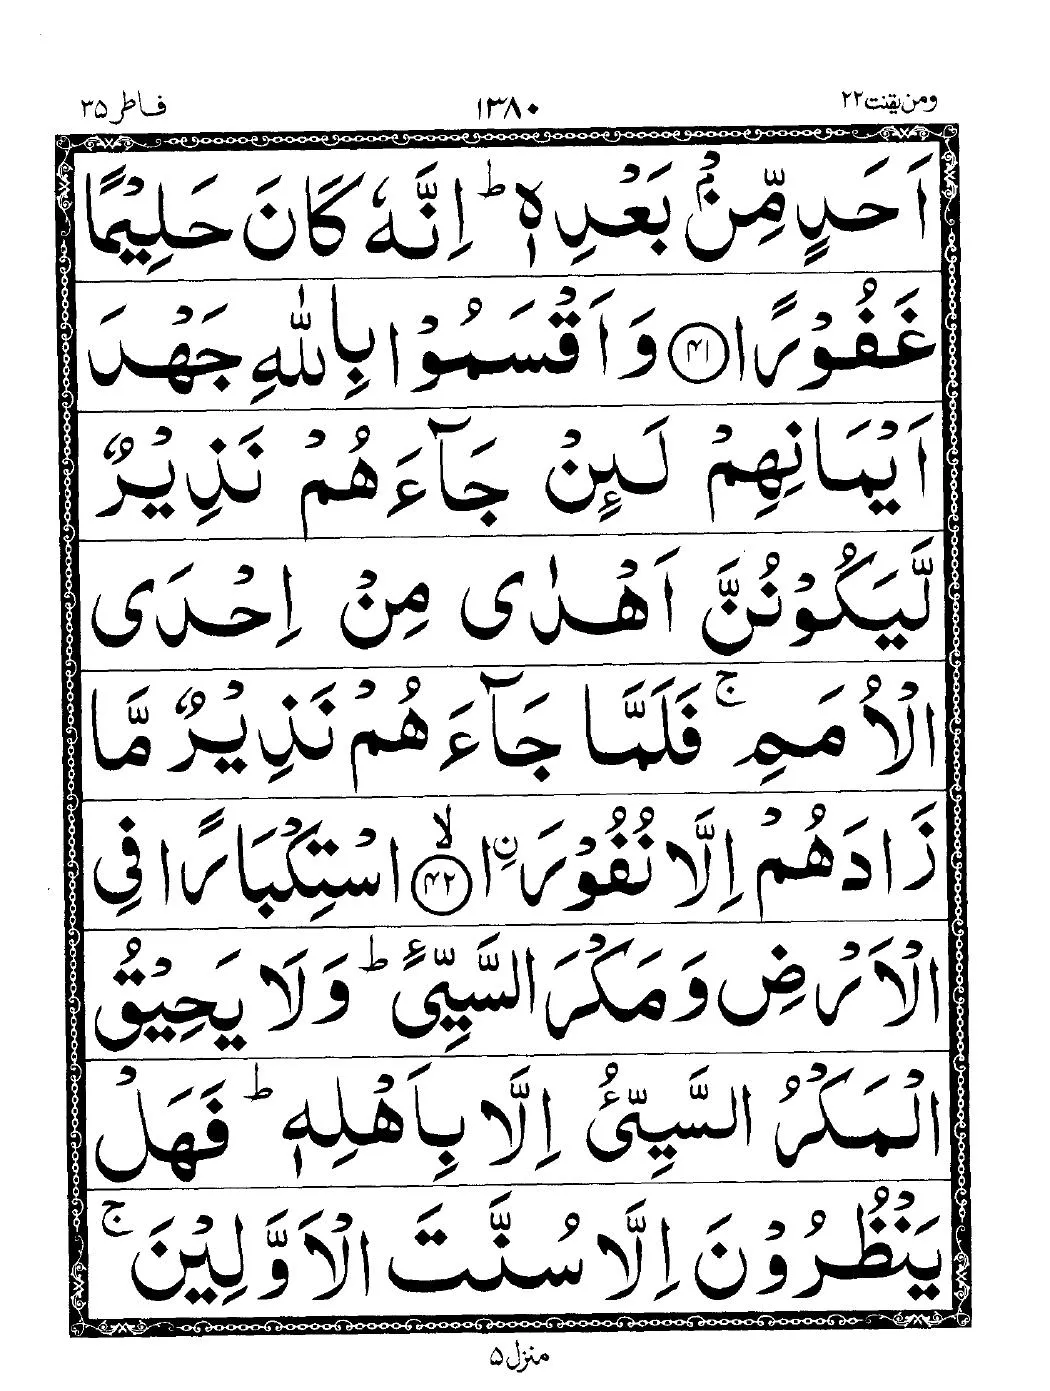 ومن یقنت ۲۲
۱۳۸۰
فاطر ۳۵
اَحَدٍ مِّنْۢ بَعْدِهٖ ؕ اِنَّهٗ كَانَ حَلِيْمًا
غَفُوْرًا ۴۱ وَ اَقْسَمُوْا بِاللّٰهِ جَهْدَ
اَيْمَانِهِمْ لَىِٕنْ جَآءَهُمْ نَذِيْرٌ
لَّيَكُوْنُنَّ اَهْدٰى مِنْ اِحْدَى
الْاُمَمِ ۚ فَلَمَّا جَآءَهُمْ نَذِيْرٌ مَّا
زَادَهُمْ اِلَّا نُفُوْرَاِ۟ن ۴۲ ۙ اسْتِكْبَارًا فِی
الْاَرْضِ وَ مَكْرَ السَّيِّئِ ؕ وَ لَا يَحِيْقُ
الْمَكْرُ السَّيِّئُ اِلَّا بِاَهْلِهٖ ؕ فَهَلْ
يَنْظُرُوْنَ اِلَّا سُنَّتَ الْاَوَّلِيْنَ ۚ
منزل ۵